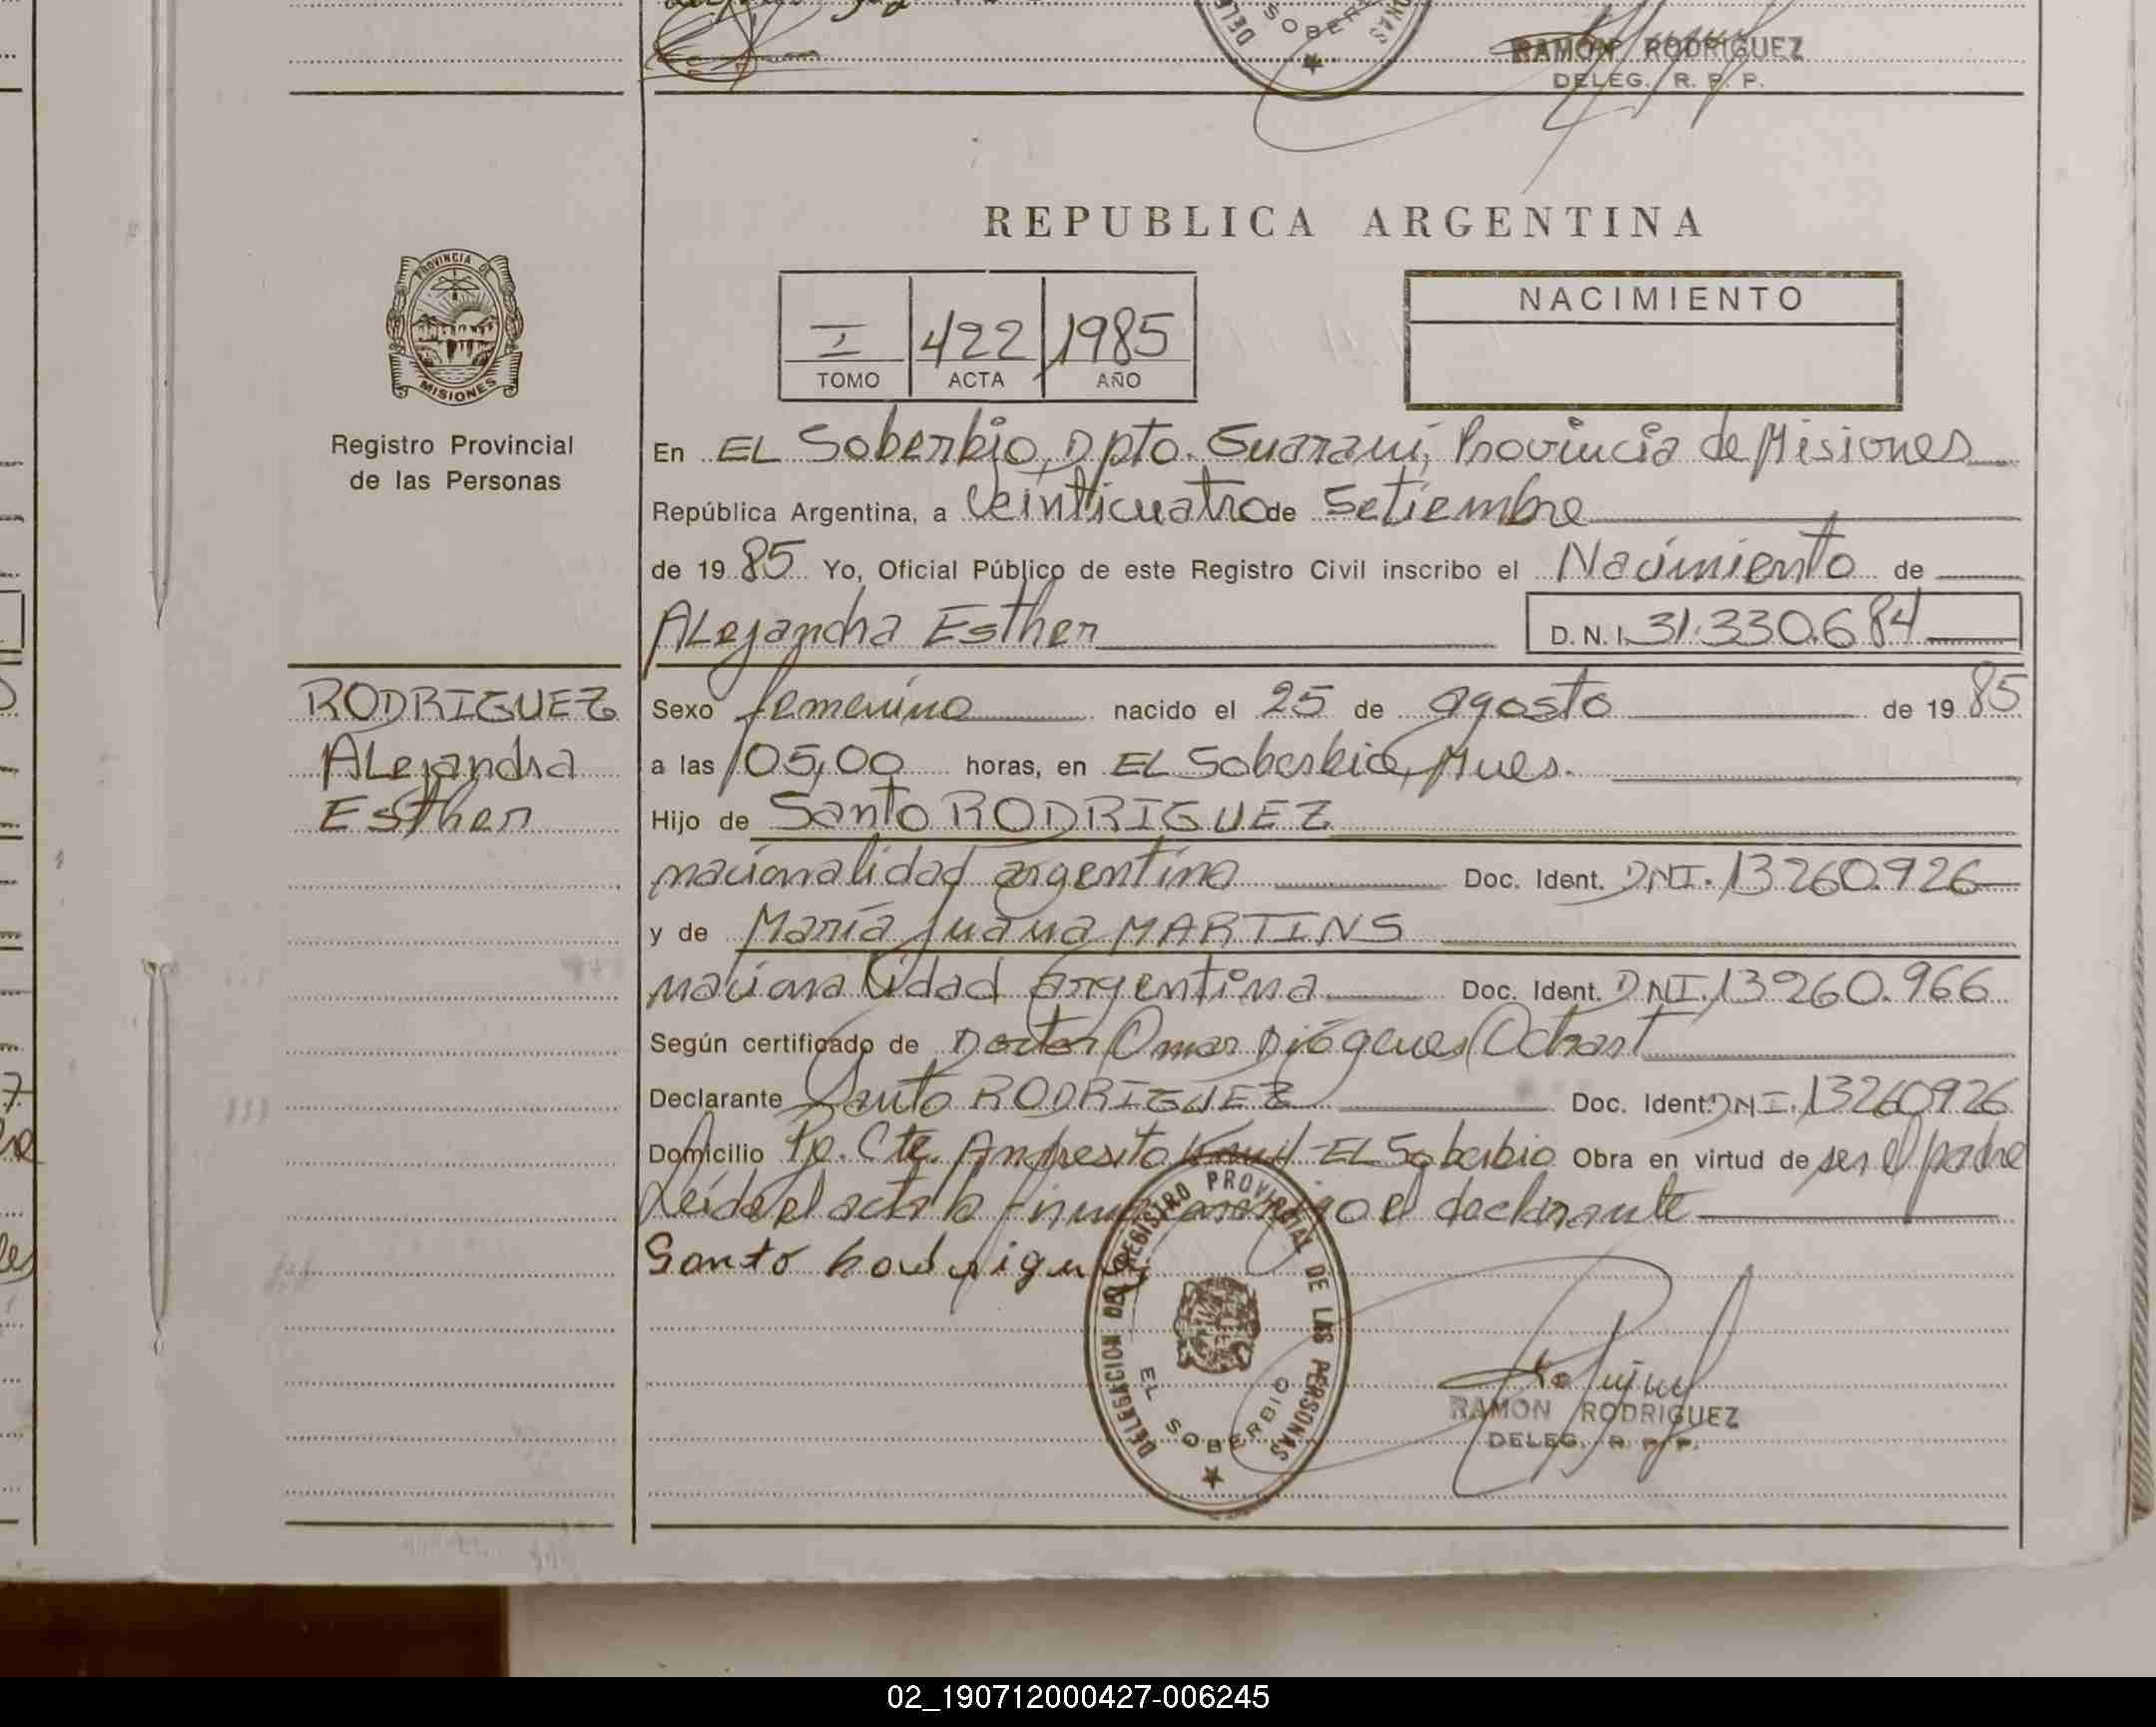 RAMON RODRIGUEZ
DELEG. R. P. P.
REPUBLICA ARGENTINA
PROVINCIA DE
MISIONES
Registro Provincial
de las Personas
I 422 1985
TOMO ACTA AÑO
NACIMIENTO
En EL Soberbio, Dpto. Guaraní, Provincia de Misiones
República Argentina, a Veinticuatro de Setiembre
de 19 85 Yo, Oficial Público de este Registro Civil inscribo el Nacimiento de
ALejandra Esther D.N.I. 31.330.684
RODRIGUEZ
ALejandra
Esther
Sexo femenino nacido el 25 de agosto de 19 85
a las 05,00 horas, en EL Soberbio, Mnes.
Hijo de Santo RODRIGUEZ
nacionalidad argentina Doc. Ident. DNI. 13260.926
y de María Juana MARTINS
nacionalidad argentina Doc. Ident. DNI. 13260.966
Según certificado de Doctor Omar Diógenes Ochart
Declarante Santo RODRIGUEZ Doc. Ident. DNI. 13260926
Domicilio Pje. Cte. Andresito EL Soberbio Obra en virtud de ser el padre
Leída el acta la firma conmigo el declarante
Santo Rodriguez
DELEGACION DEL REGISTRO PROVINCIAL DE LAS PERSONAS
EL SOBERBIO
RAMON RODRIGUEZ
DELEG. R. P. P.
02_190712000427-006245